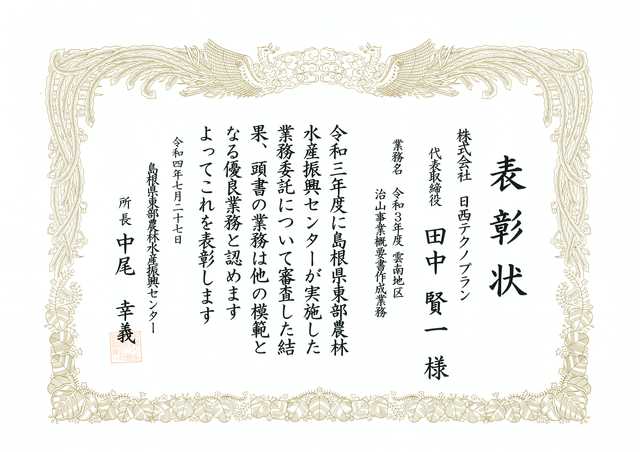 表彰状
株式会社 日西テクノプラン
代表取締役 田中 賢一 様
業務名 令和3年度 雲南地区
治山事業概要書作成業務
令和三年度に島根県東部農林
水産振興センターが実施した
業務委託について審査した結
果、頭書の業務は他の模範と
なる優良業務と認めます
よってこれを表彰します
令和四年七月二十七日
島根県東部農林水産振興センター
所長 中尾 幸義